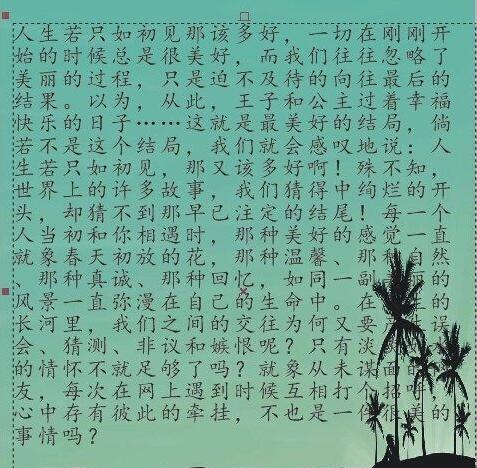 人生若只如初见那该多好，一切在刚刚开
始的时候总是很美好，而我们往往忽略了
美丽的过程，只是迫不及待的向往最后的
结果。以为，从此，王子和公主过着幸福
快乐的日子……这就是最美好的结局，倘
若不是这个结局，我们就会感叹地说：人
生若只如初见，那又该多好啊！殊不知，
世界上的许多故事，我们猜得中绚烂的开
头，却猜不到那早已注定的结尾！每一个
人当初和你相遇时，那种美好的感觉一直
就象春天初放的花，那种温馨、那种自然
、那种真诚、那种回忆，如同一副美丽的
风景一直弥漫在自己的生命中。在生的
长河里，我们之间的交往为何又要误
会、猜测、非议和嫉恨呢？只有淡
的情怀不就足够了吗？就象从未谋面的
友，每次在网上遇到时候互相打个招
心中存有彼此的牵挂，不也是一件很美的
事情吗？